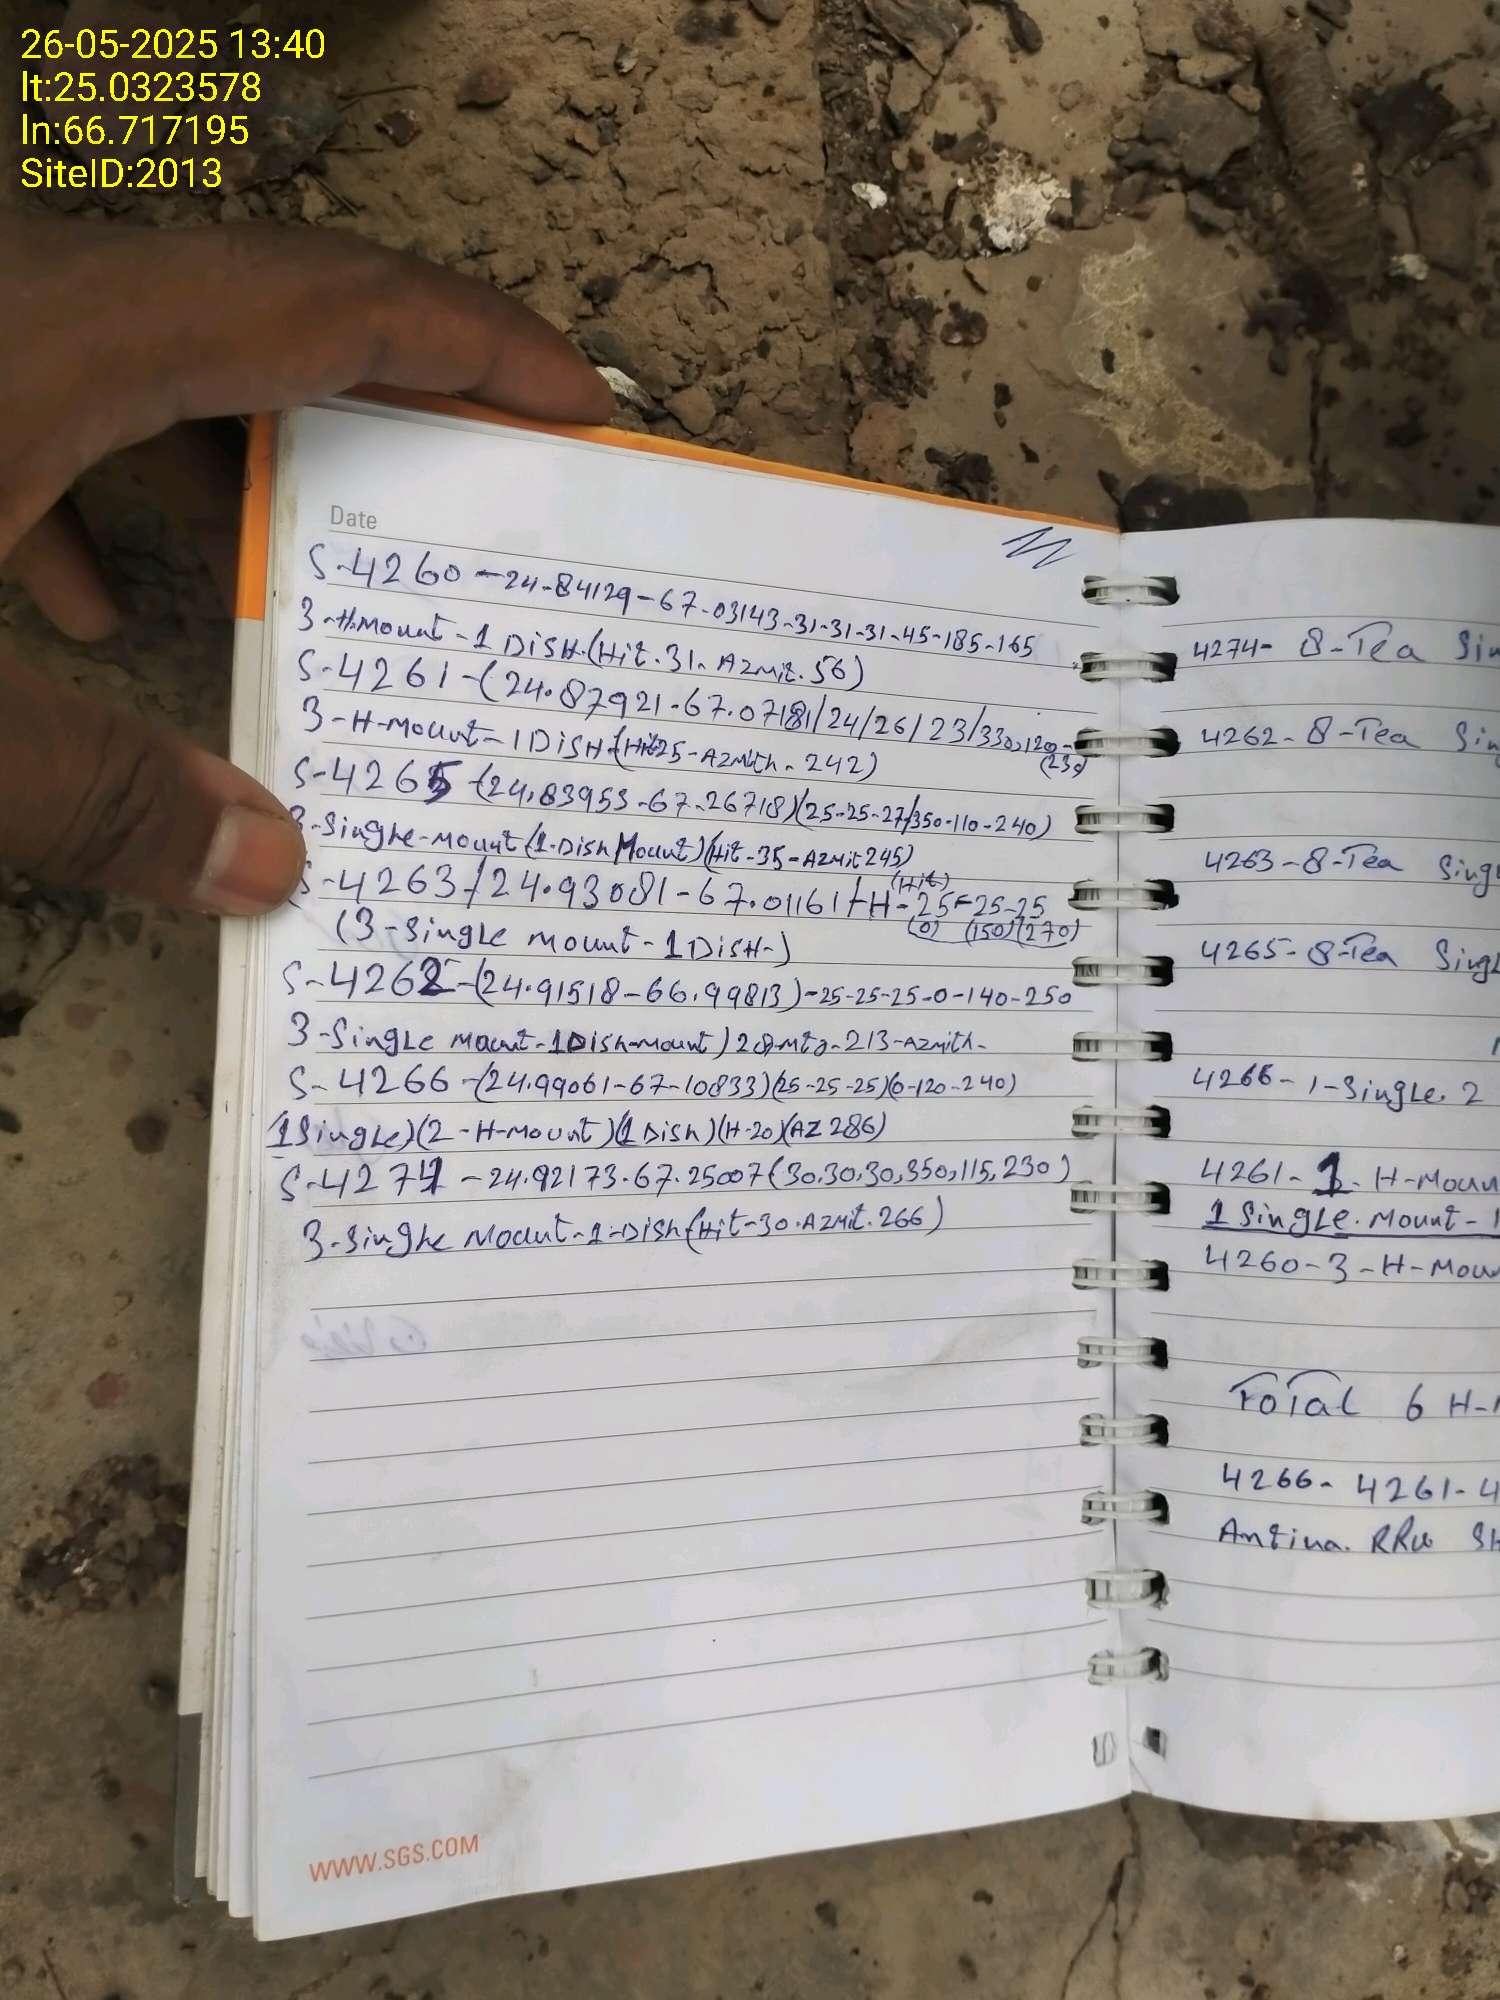 26-05-2025 13:40
lt:25.0323578
ln:66.717195
SiteID:2013
Date
S-4260-24-84129-67-03143-31-31-31-45-185-165
3-H-Mount-1 DISH.(Hit.31-Azmit.56)
S-4261-(24.87921-67.07181/24/26/23/330,120-
(230)
3-H-Mount-1DISH-(Hit25-Azmith-242)
S-4265-(24.83953-67-26718)(25-25-27/350-110-240)
3-Single-Mount(1-Dish Mount)(Hit-35-Azmit245)
S-4263/24.93081-67.01161/-H-25-25-25
(Hit)
(0) (150)(270)
(3-Single mount-1DISH-)
S-4262-(24.91518-66.99813)-25-25-25-0-140-250
3-Single Mount-1Dish-mount) -213-Azmith-
S-4266-(24.99061-67-10833)(25-25-25)(0-120-240)
1Single)(2-H-Mount)(1Dish)(H-20)(AZ286)
S-4274-24.92173-67.25007(30,30,30,350,115,230)
3-Single Mount-1-Dish(Hit-30.Azmit.266)
WWW.SGS.COM
4274- 8-Tea Sin
4262-8-Tea Sin
4263-8-Tea Singl
4265-8-Tea Singl
4266-1-Single. 2
4261-1-H-Moun
1 Single.Mount-1
4260-3-H-Moun
Total 6 H-
4266- 4261-4
Antina. RRU SH